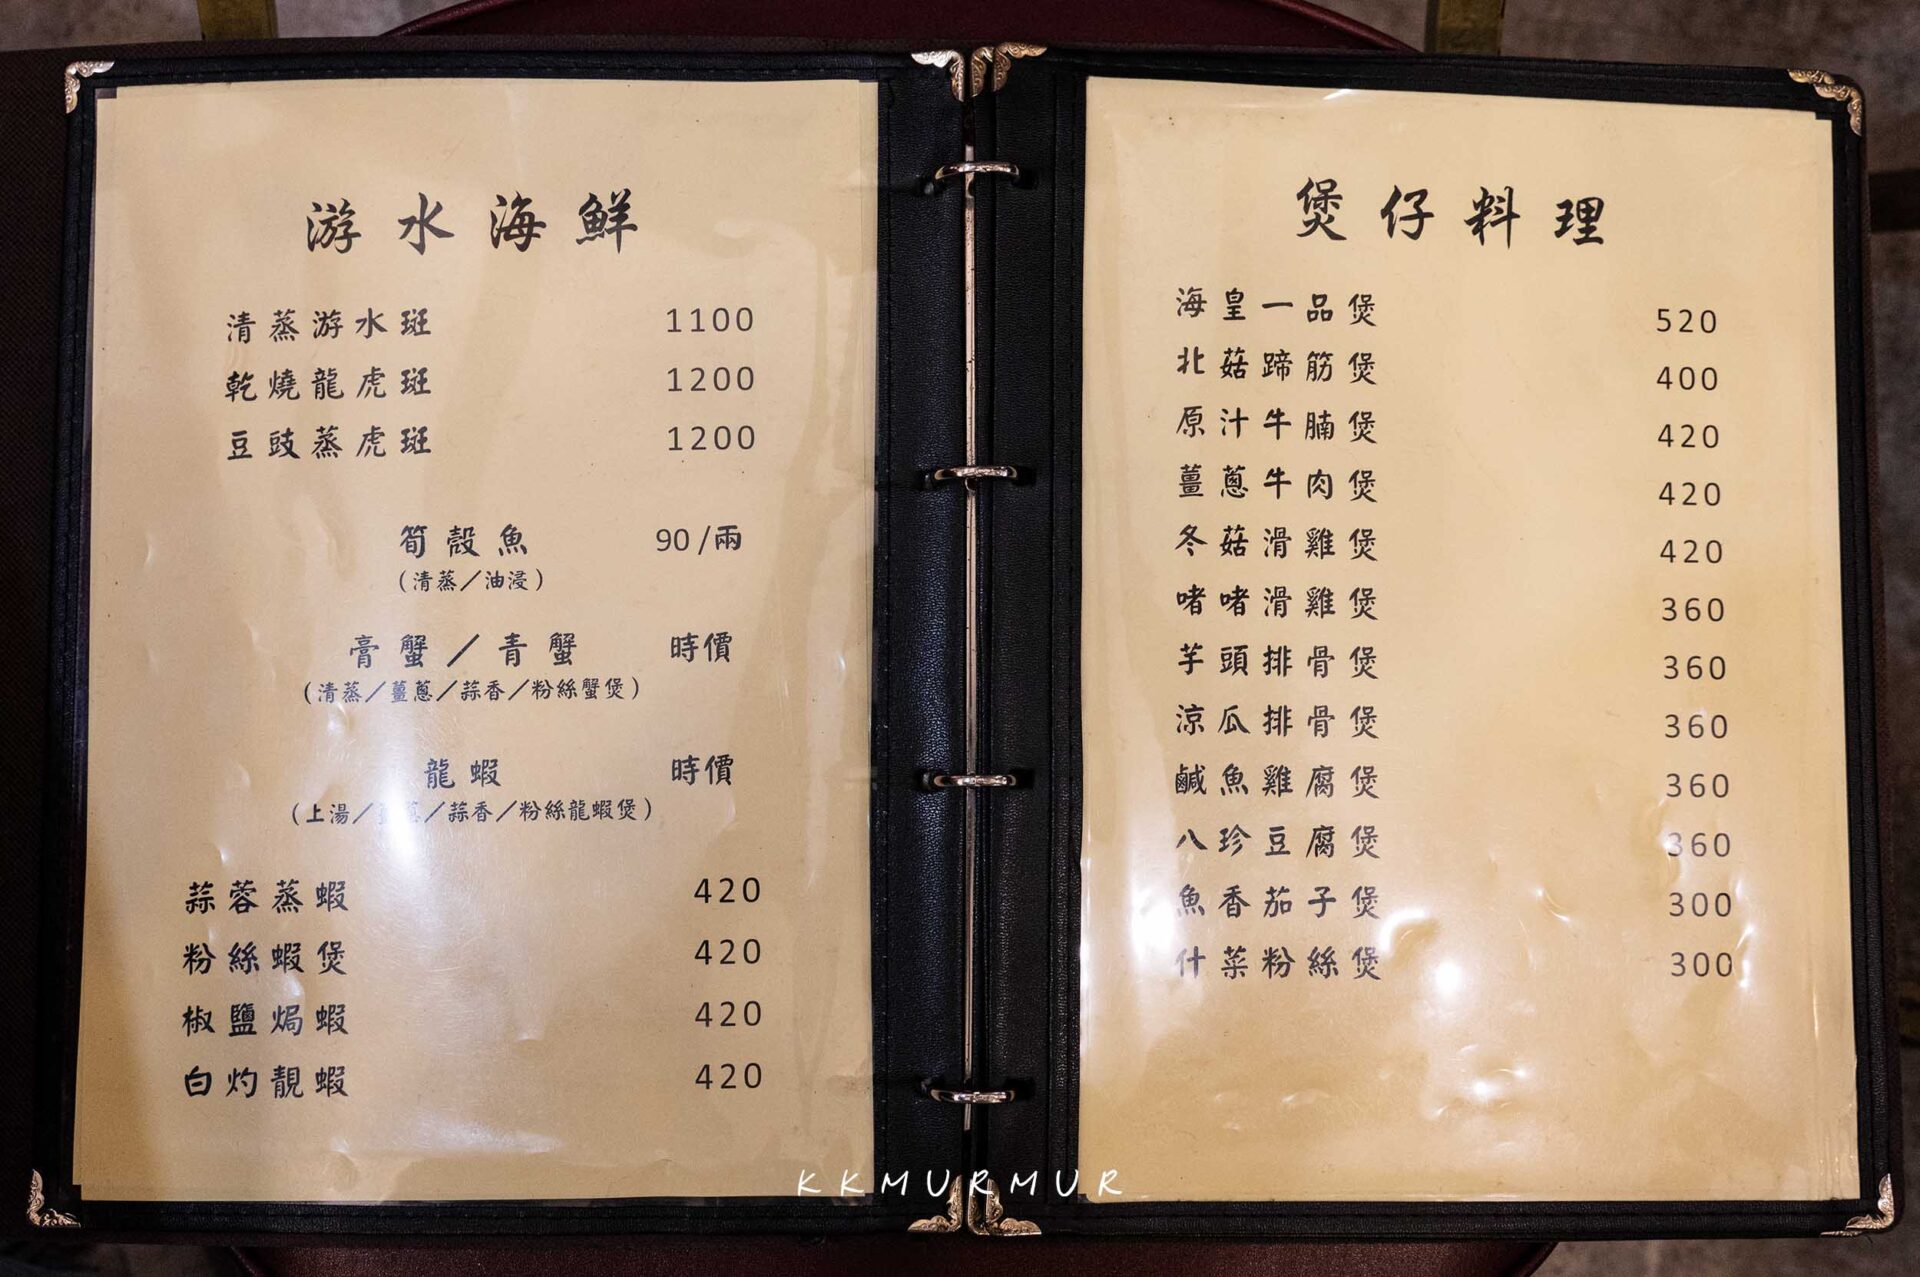 游水海鮮
清蒸游水斑 1100
乾燒龍虎斑 1200
豆豉蒸虎斑 1200
筍殼魚 90/兩
(清蒸/油浸)
膏蟹/青蟹 時價
(清蒸/薑蔥/蒜香/粉絲蟹煲)
龍蝦 時價
(上湯/ /蒜香/粉絲龍蝦煲)
蒜蓉蒸蝦 420
粉絲蝦煲 420
椒鹽焗蝦 420
白灼靚蝦 420
煲仔料理
海皇一品煲 520
北菇蹄筋煲 400
原汁牛腩煲 420
薑蔥牛肉煲 420
冬菇滑雞煲 420
啫啫滑雞煲 360
芋頭排骨煲 360
涼瓜排骨煲 360
鹹魚雞腐煲 360
八珍豆腐煲 360
魚香茄子煲 300
什菜粉絲煲 300
KKMURMUR